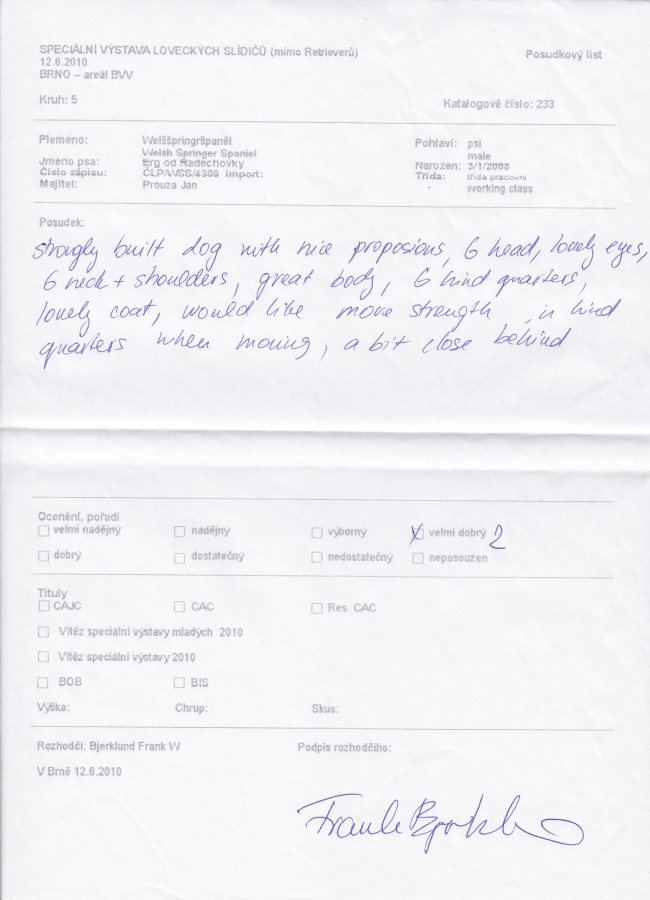 SPECIÁLNÍ VÝSTAVA LOVECKÝCH SLÍDIČŮ (mimo Retrieverů)
Posudkový list
12.6.2010
BRNO – areál BVV
Kruh: 5
Katalogové číslo: 233
Plemeno: Welššpringršpaněl
Welsh Springer Spaniel
Pohlaví: psi
male
Jméno psa: Erg od Radechovky
Narozen: 3/1/2008
Číslo zápisu: ČLP/WSS/4309 Import:
Třída: třída pracovní
working class
Majitel: Prouza Jan
Posudek:
strongly built dog with nice proposions, G head, lovely eyes,
G neck + shoulders, great body, G hind quarters,
lovely coat, would like more strength in hind
quarters when moving, a bit close behind
Ocenění, pořadí
velmi nadějný nadějný výborný velmi dobrý 2
dobrý dostatečný nedostatečný neposouzen
Tituly
CAJC CAC Res. CAC
Vítěz speciální výstavy mladých 2010
Vítěz speciální výstavy 2010
BOB BIS
Výška: Chrup: Skus:
Rozhodčí: Bjerklund Frank W
Podpis rozhodčího:
V Brně 12.6.2010